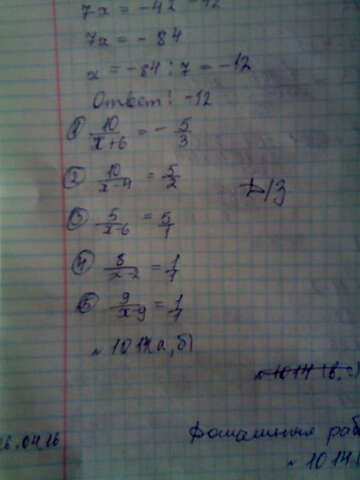 7x = -42 -42
7x = -84
x = -84 : 7 = -12
Ответ: -12
① 10/(x+6) = - 5/3
② 10/(x-4) = 5/2
Д/З
③ 5/(x-6) = 5/1
④ 8/(x-2) = 1/7
⑤ 9/(x-9) = 1/7
№ 1012(а, б)
6.04.16
Домашняя раб
№ 1014